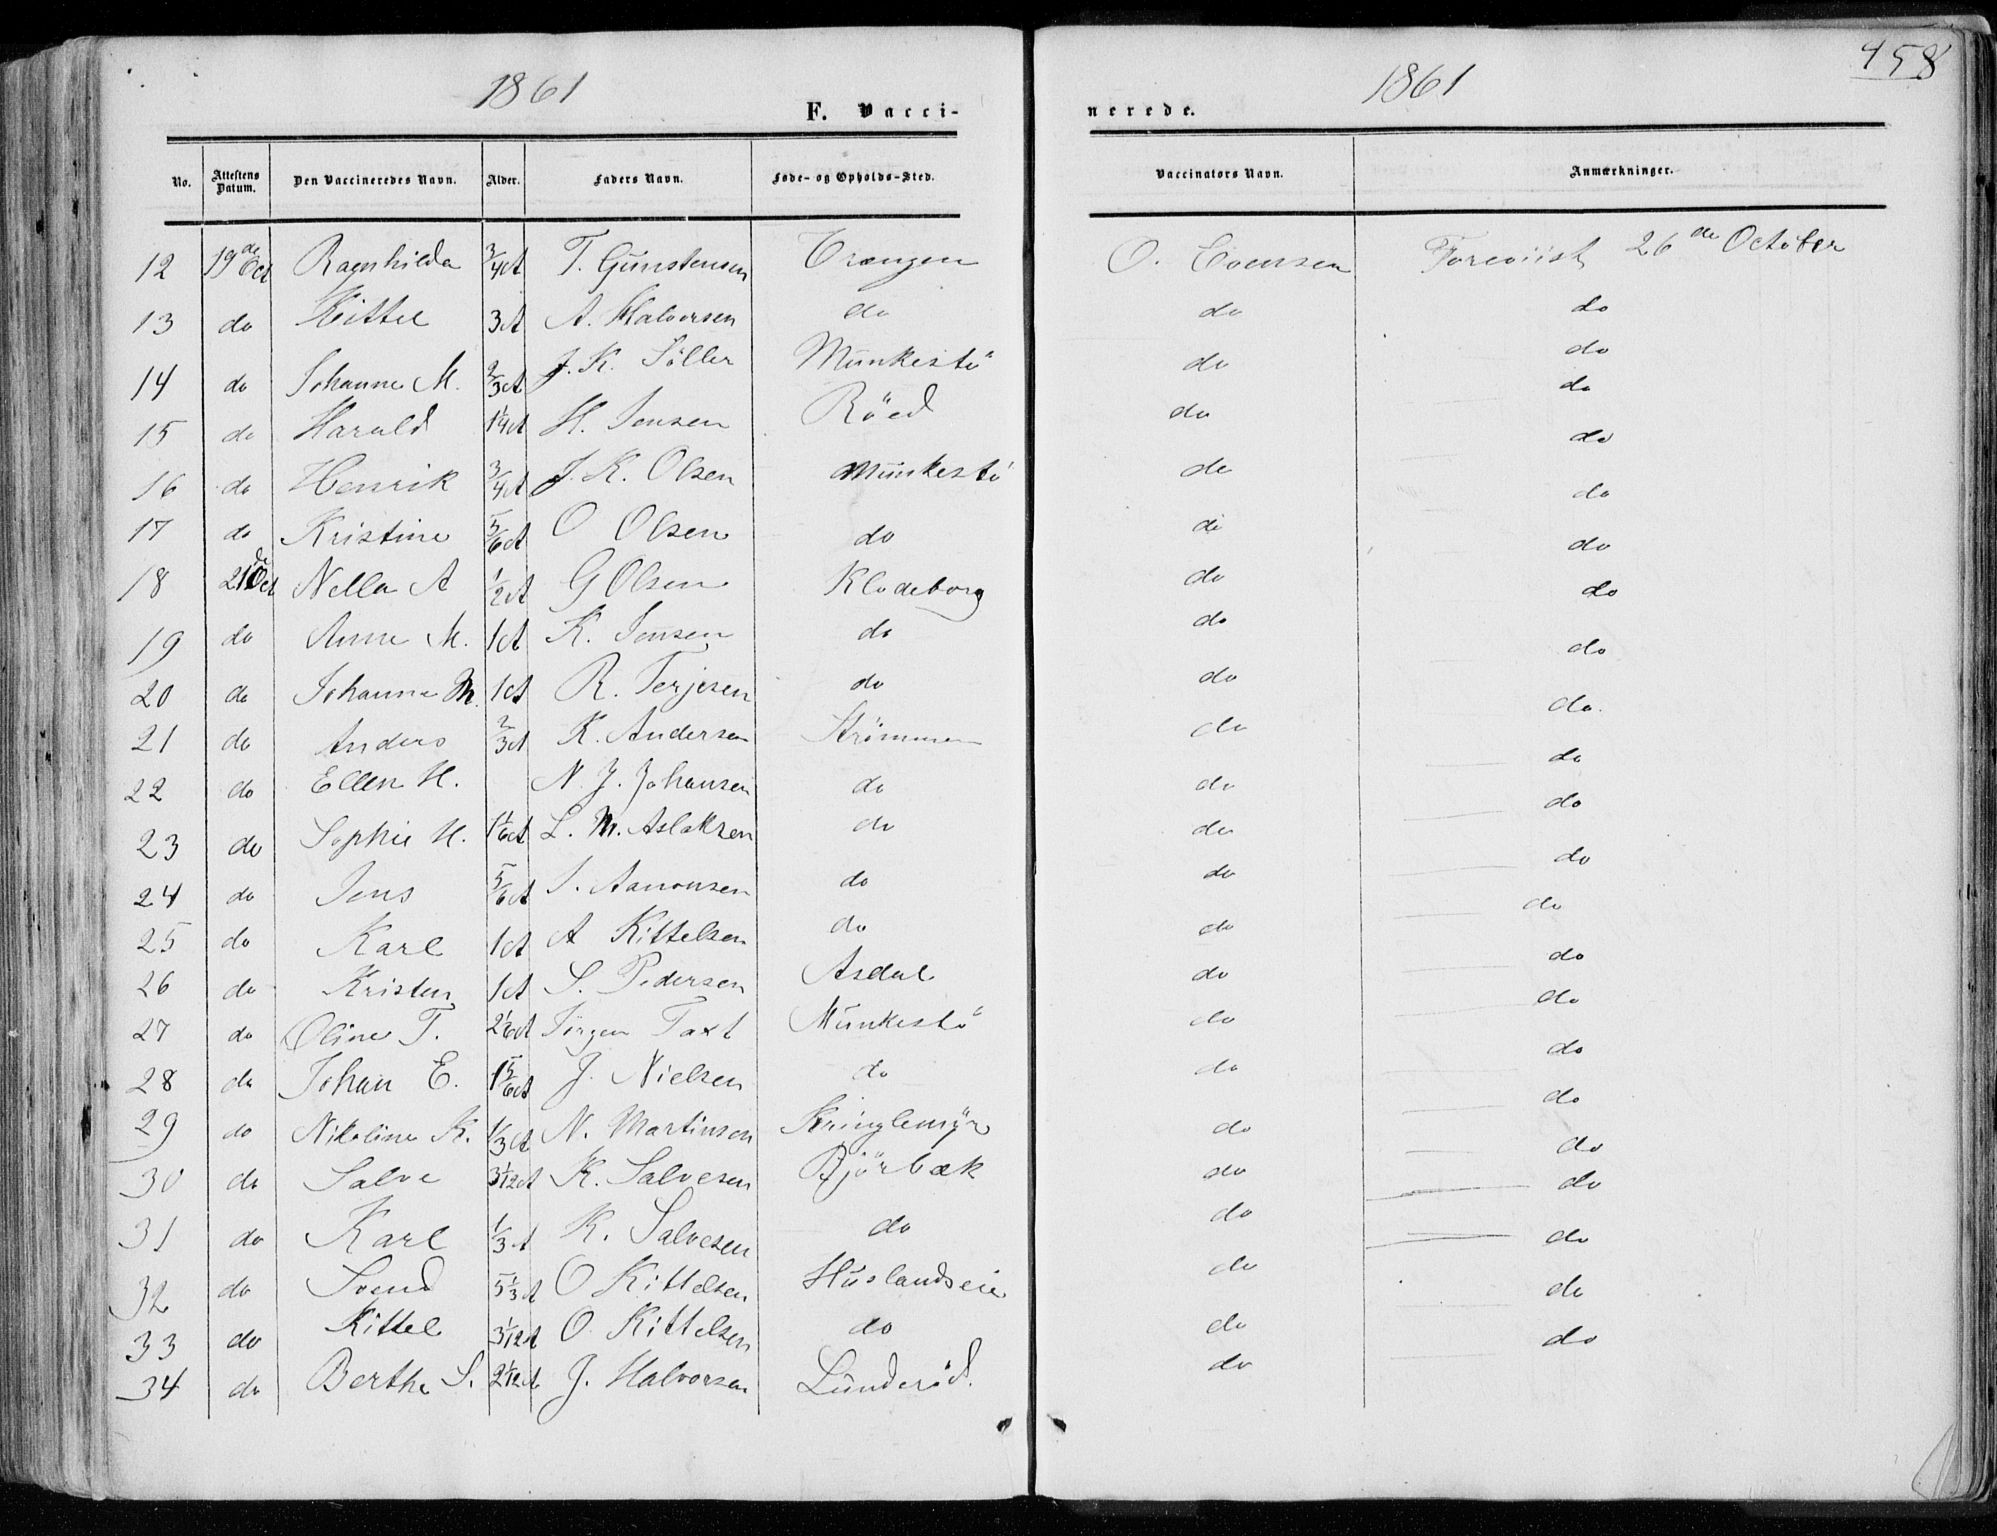 1861 1861 458
F. Vacci- nerede.
No. Attestens Datum. Den Vaccineredes Navn. Alder. Faders Navn. Føde- og Opholds-Sted. Vaccinators Navn. Anmærkninger.
12 19de Oct Ragnhilda 3/4 A T. Gunstensen Trængen O. Evensen Foreviist 26de October
13 do Kittel 3 A A. Halvorsen do do do
14 do Johanne M. 2/3 A J. K. Söller Munkestö do do
15 do Harald 1 1/4 A H. Jensen Röed do do
16 do Henrik 3/4 A J. K. Olsen Munkestö do do
17 do Kristine 5/6 A O Olsen do do do
18 21de Oct Nella A 1/2 A G Olsen Klodeborg do do
19 do Anne M. 1 A K. Jensen do do do
20 do Johanne M. 1 A R. Terjesen do do do
21 do Anders 2/3 A K. Andersen Strømmen do do.
22 do Ellen H. N. J. Johansen do do do
23 do Sophie H. 1 1/6 A L. M. Aslaksen do do do
24 do Jens 5/6 A S. Aanonsen do do do
25 do Karl 1 A A Kittelsen do do do
26 do Kristen 1 A S. Pedersen Asdal do do
27 do Oline T. 2 1/6 A Jörgen Taxt Munkestö do do
28 do Johan E. 1 5/6 A J. Nielsen do do do
29 do Nikoline K. 1/3 A N. Martinsen Kringlemyr do do
30 do Salve 3 1/12 A K. Salvesen Bjørbæk do do
31 do Karl 1/3 A K. Salvesen do do do
32 do Svend 5 1/3 A O Kittelsen Huslandseie do do
33 do Kittel 3 1/12 A O. Kittelsen do do do
34 do Berthe S. 2 1/12 A J. Halvorsen Lunderöd. do do